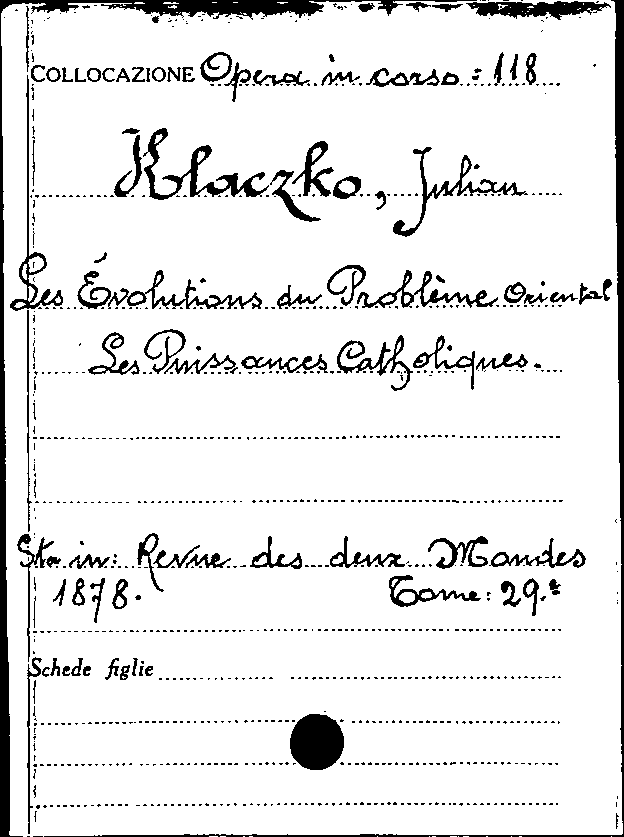 COLLOCAZIONE Opera in corso : 118
Klaczko, Julian
Les Évolutions du Problème Oriental
Les Puissances Catholiques.
Sta in: Revue des deux Mondes
1878. Tome: 29.º
Schede figlie